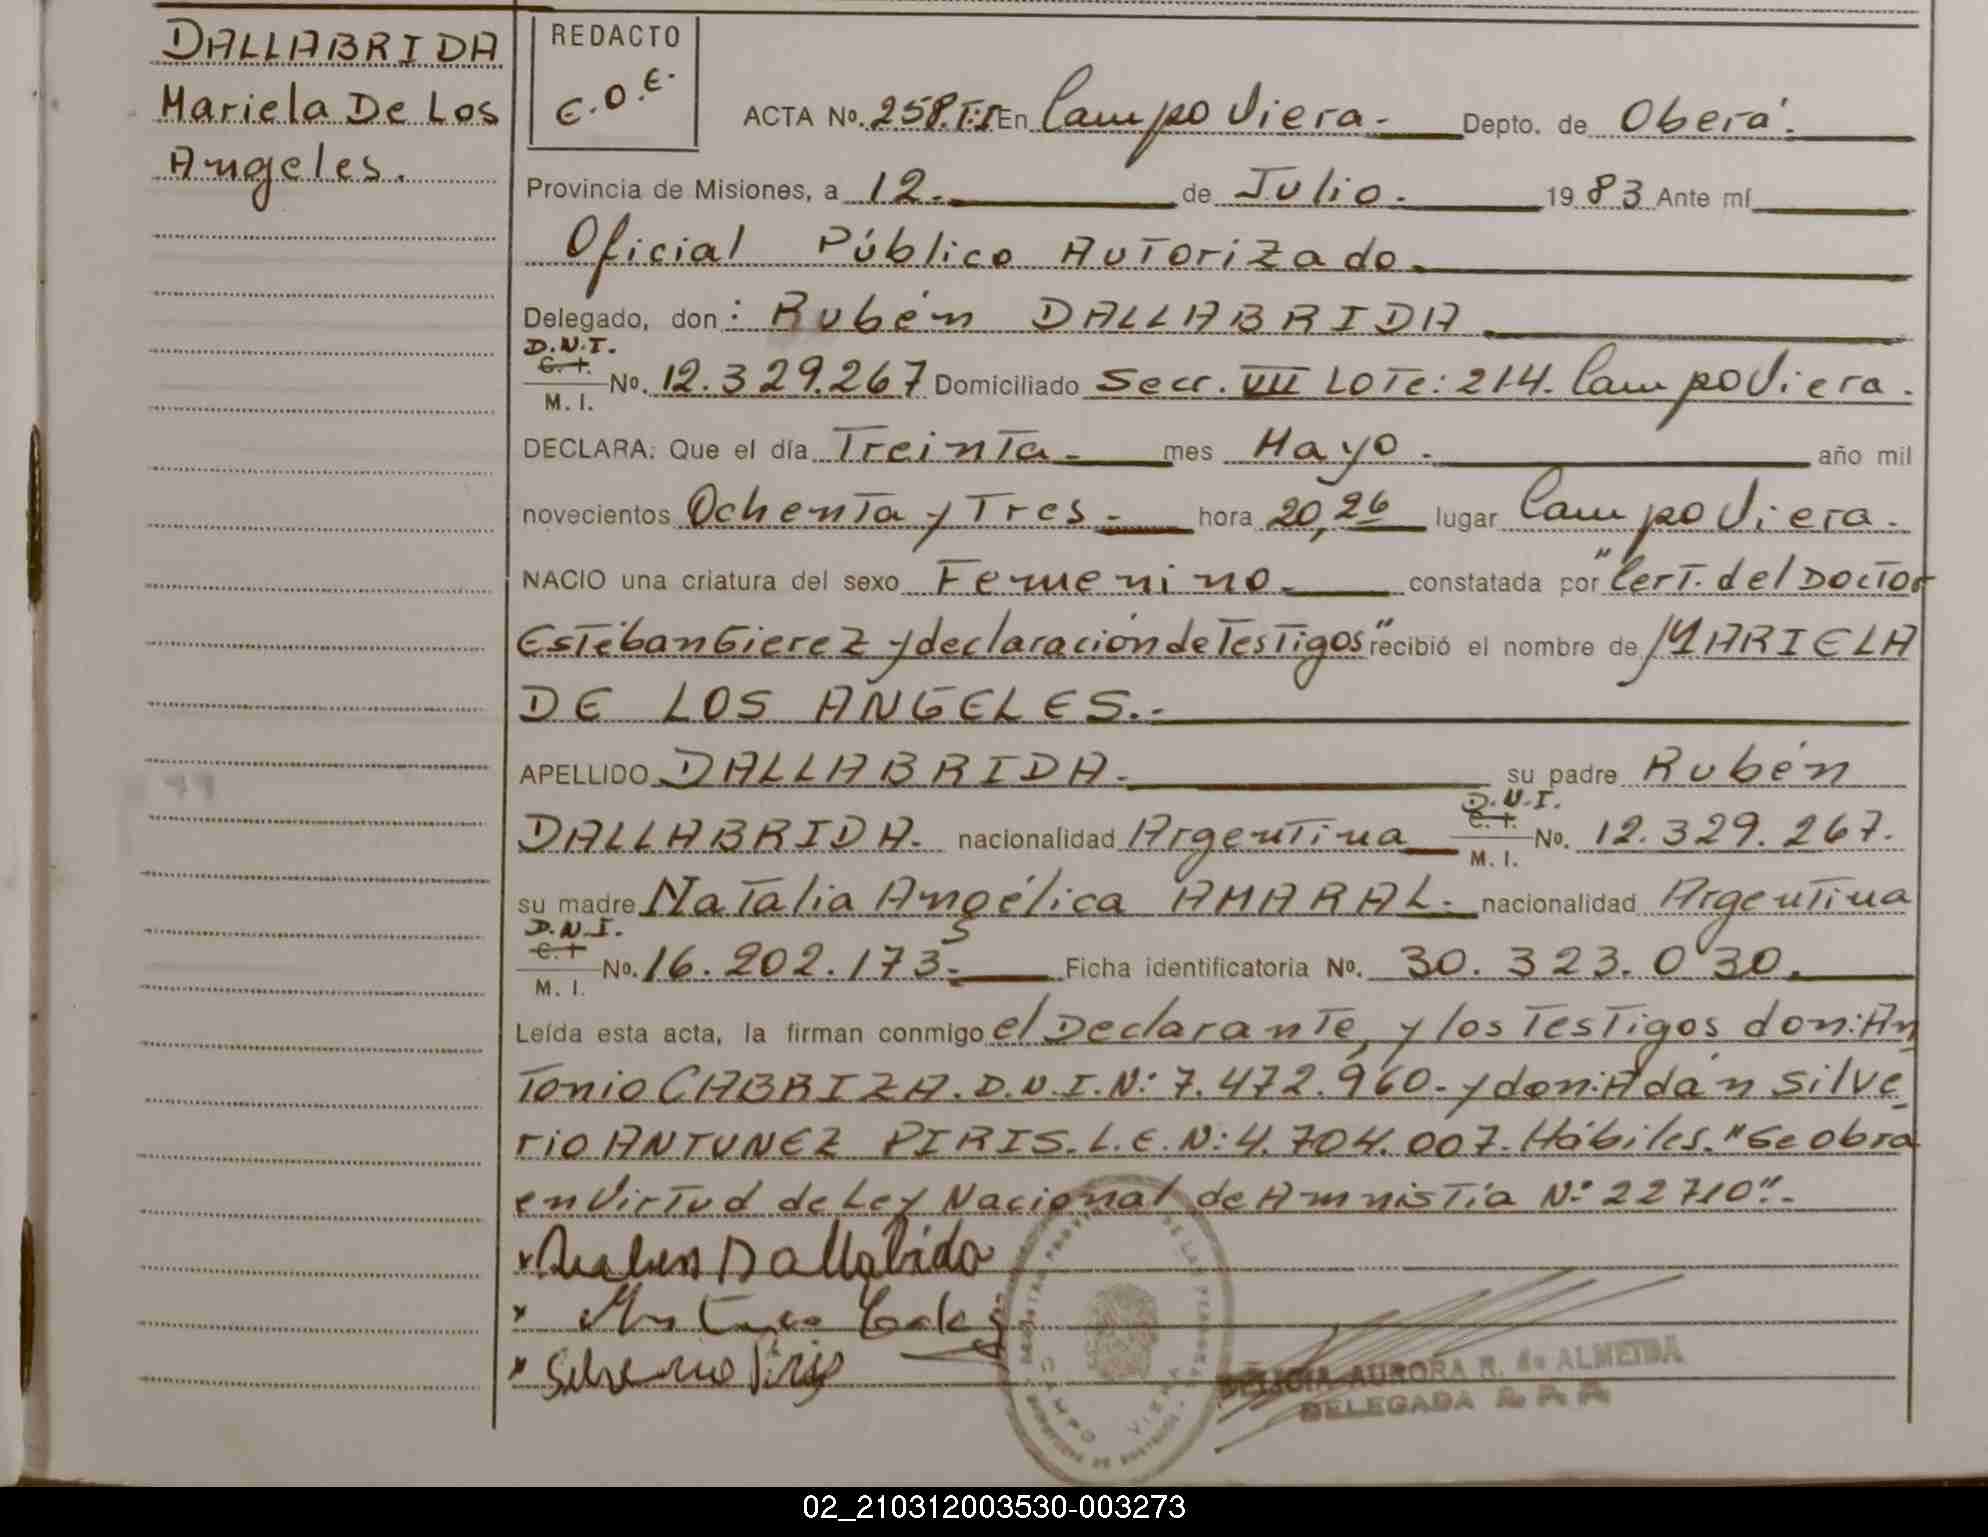 DALLABRIDA
Mariela De Los
Angeles.
REDACTO
E.O.E.
ACTA No. 258.T:I En Campo Viera.- Depto. de Oberá.
Provincia de Misiones, a 12. de Julio. 1983 Ante mí
Oficial Público Autorizado.
Delegado, don: Rubén DALLABRIDA
D.N.I.
C. I.
M. I. No. 12.329.267 Domiciliado Secc. VII Lote: 214. Campo Viera.
DECLARA: Que el día Treinta.- mes Mayo.- año mil
novecientos Ochenta y Tres.- hora 20,26 lugar Campo Viera.
NACIO una criatura del sexo Femenino.- constatada por "Cert. del Doctor
Estéban Gierez y declaración de Testigos" recibió el nombre de MARIELA
DE LOS ANGELES.-
APELLIDO DALLABRIDA.- su padre Rubén
DALLABRIDA. nacionalidad Argentina D.N.I.
C. I.
M. I. No. 12.329.267.
su madre Natalia Angélica AMARAL.- nacionalidad Argentina
D.N.I.
C. I.
M. I. No. 16.202.173.- Ficha identificatoria No. 30.323.030.
Leída esta acta, la firman conmigo el Declarante, y los Testigos don: An
tonio CABRIZA. D.N.I. N: 7.472.960.- y don: Adán Silve
rio ANTUNEZ PIRIS. L.E. N: 4.704.007. Hábiles. "Se obra
en Virtud de Ley Nacional de Amnistía Nº 22710".-
Ruben Dallabrida
Silverio Piris
CAMPO VIERA
DELICIA AURORA R. de ALMEIDA
DELEGADA
02_210312003530-003273